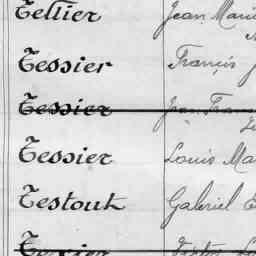 Tellier Jean Marie
Tessier Francis J
Tessier Jean Fran
Tessier Louis Ma
Testout Gabriel E
Texier Victor